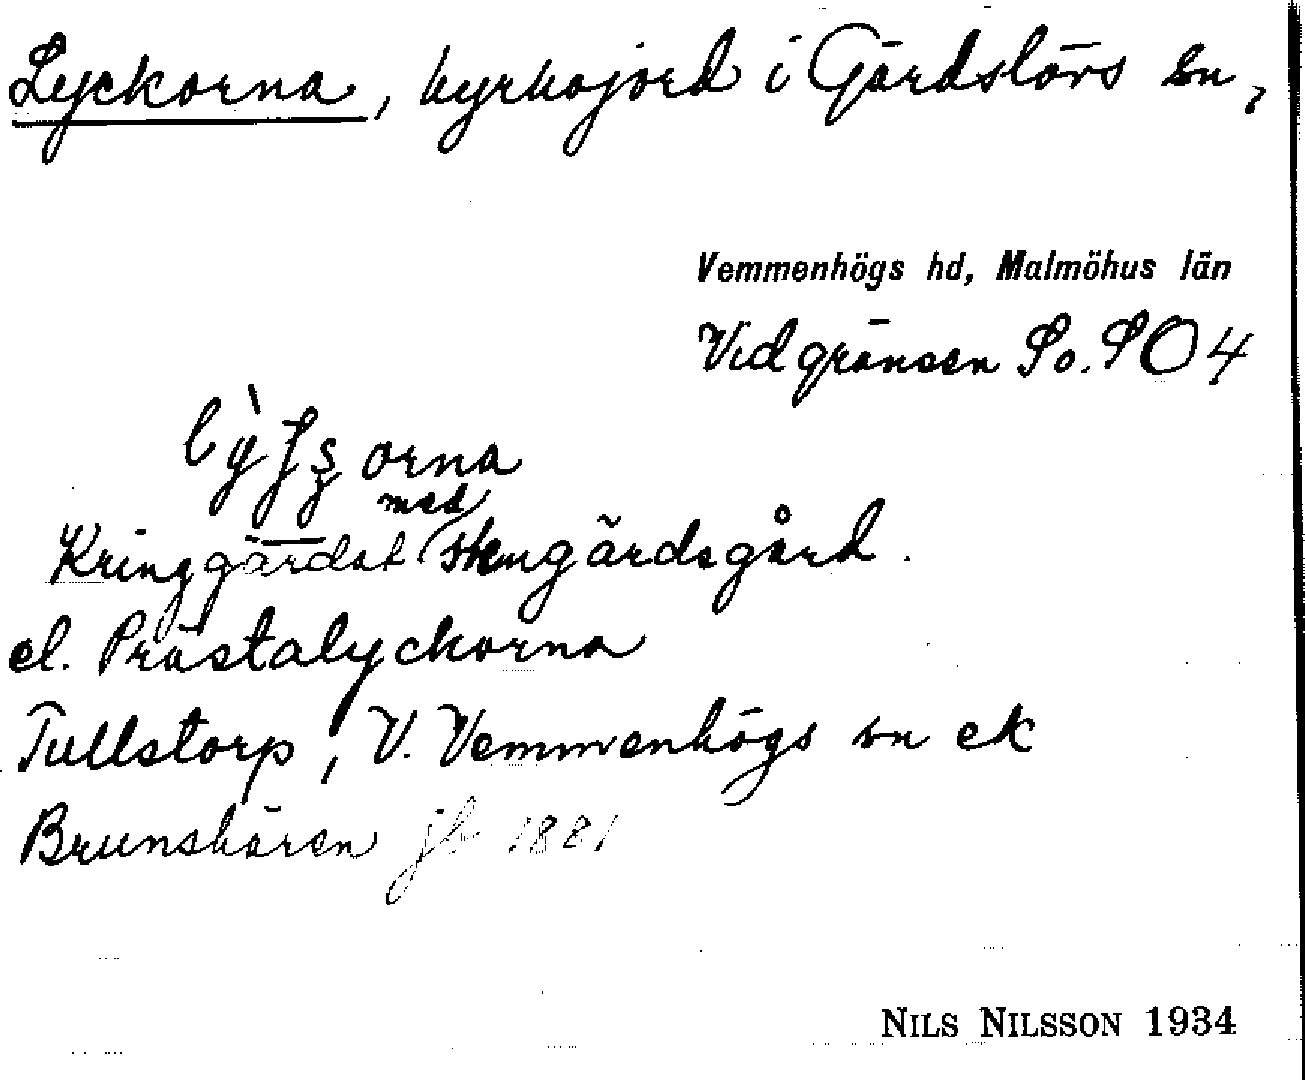 Lyckorna, kyrkojord i Gärdslövs sn,
Vemmenhögs hd, Malmöhus län
Vid gränsen So. SO 4
orna
Kringgärdat med stengärdsgård.
el. Prästalyckorna
Tullstorp, V. Vemmenhögs sn ek
Brunskären jb 1881
NILS NILSSON 1934